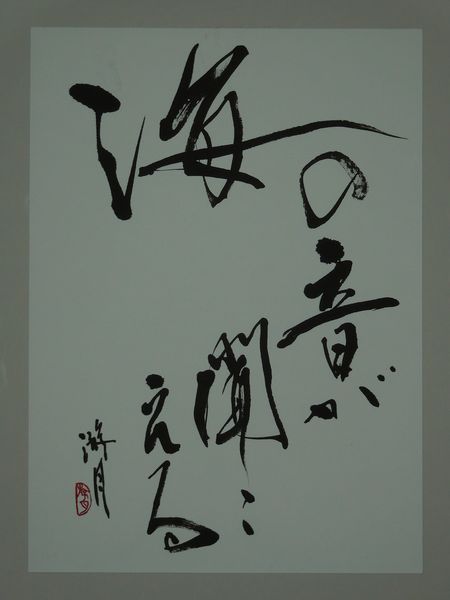 海の
音が
聞こ
える
游月